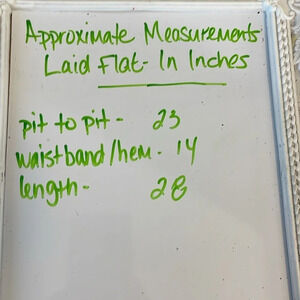 Approximate Measurements
Laid Flat- In Inches
pit to pit - 23
waistband/hem - 14
length - 28